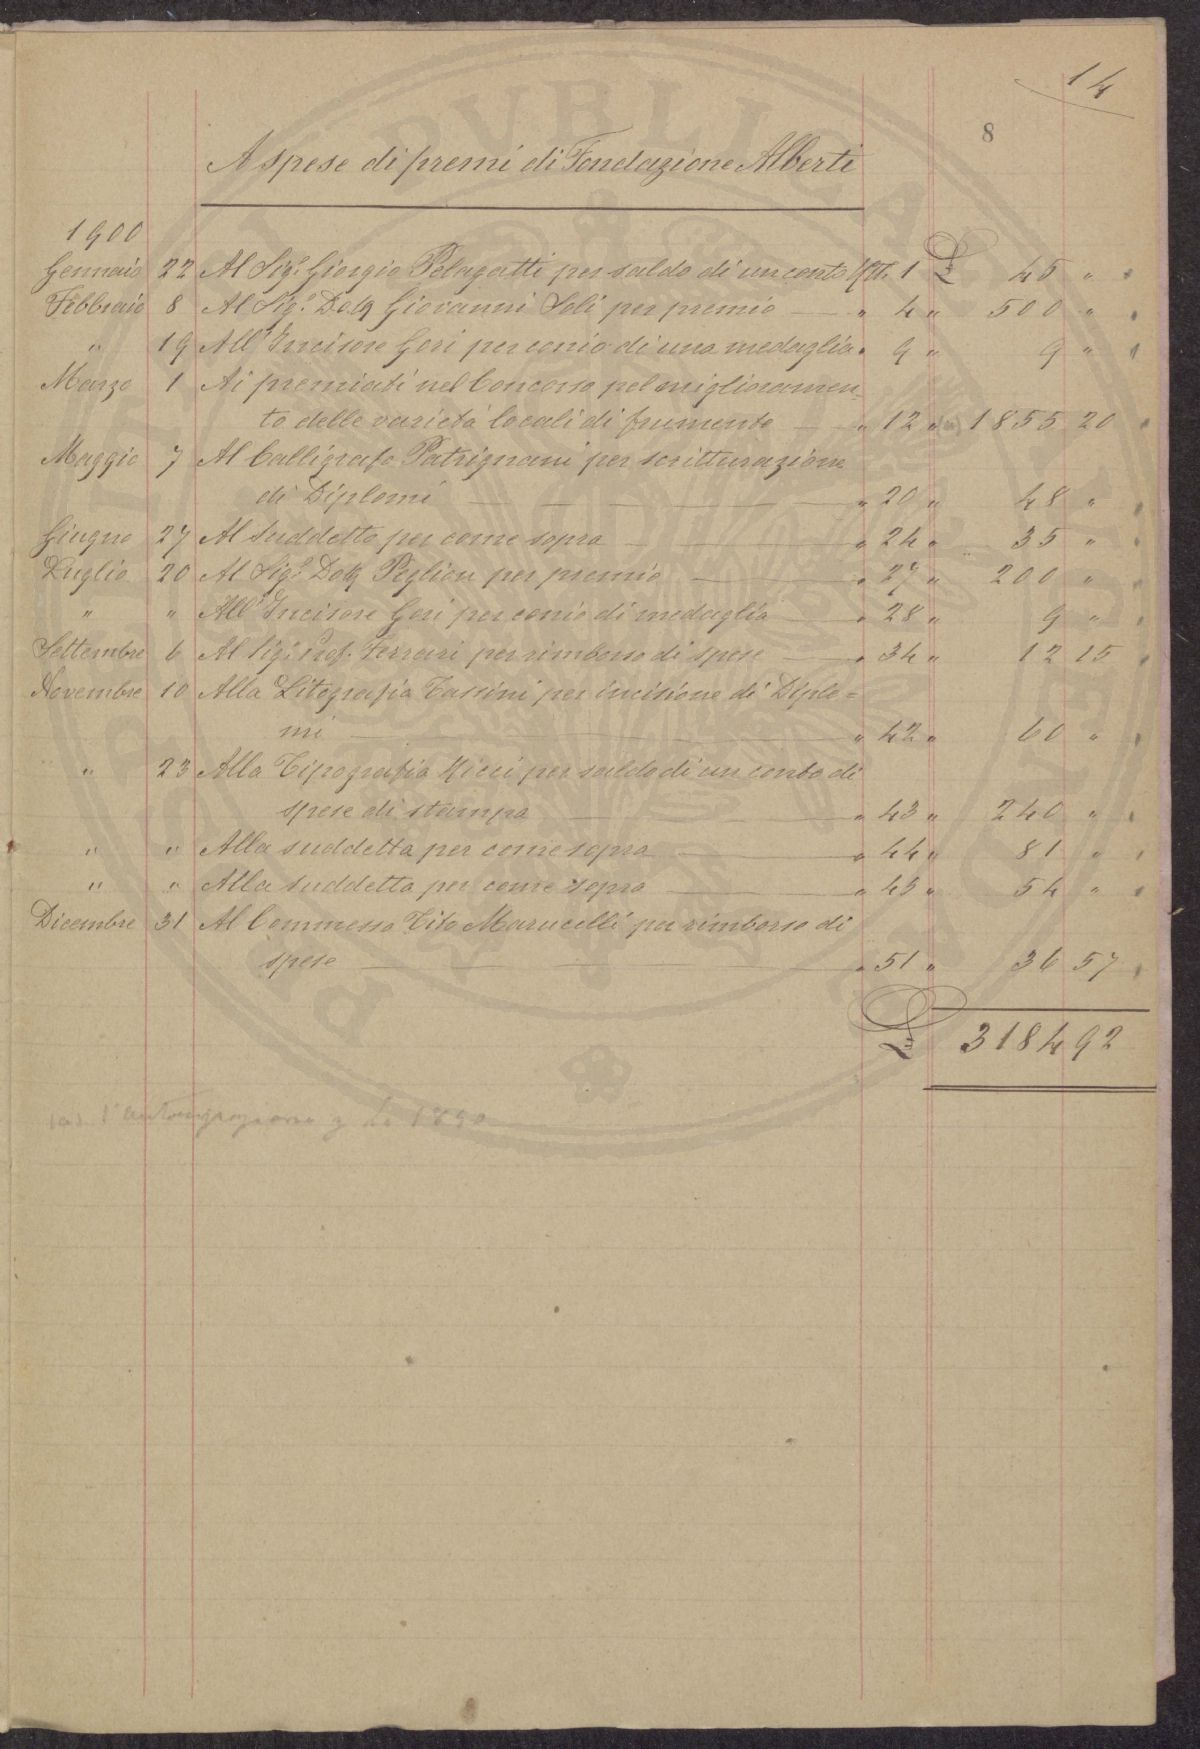 14
8
A spese di premi di Fondazione Alberti
1900
Gennaio 22 Al Sig.r Giorgio Pelagatti per saldo di un conto 1 £ 45 "
Febbraio 8 Al Sig.r Giovanni Soli per premio " 4 " 500 "
" 19 All'Incisore Gori per conio di una medaglia " 9 " 9 "
Marzo 1 Ai premiati nel Concorso pel miglioramen-
to delle varietà locali di frumento " 12 " 1855 20
Maggio 7 Al Calligrafo Patrignani per scritturazione
di Diplomi " 20 " 48 "
Giugno 27 Al Suddetto per come sopra " 24 " 35 "
Luglio 20 Al Sig.r Peglion per premio " 27 " 200 "
" " All'Incisore Gori per conio di medaglia " 28 " 9 "
Settembre 6 Al Sig.r Prof. Ferrari per rimborso di spese " 34 " 12 15
Novembre 10 Alla Litografia Tassini per incisione di Diplo=
mi " 42 " 60 "
" 23 Alla Tipografia Ricci per saldo di un conto di
spese di stampa " 43 " 240 "
" " Alla suddetta per come sopra " 44 " 81 "
" " Alla suddetta per come sopra " 45 " 54 "
Dicembre 31 Al Commesso Tito Marucelli per rimborso di
spese " 51 " 36 57
£ 3184 92
1890
PVBLICA